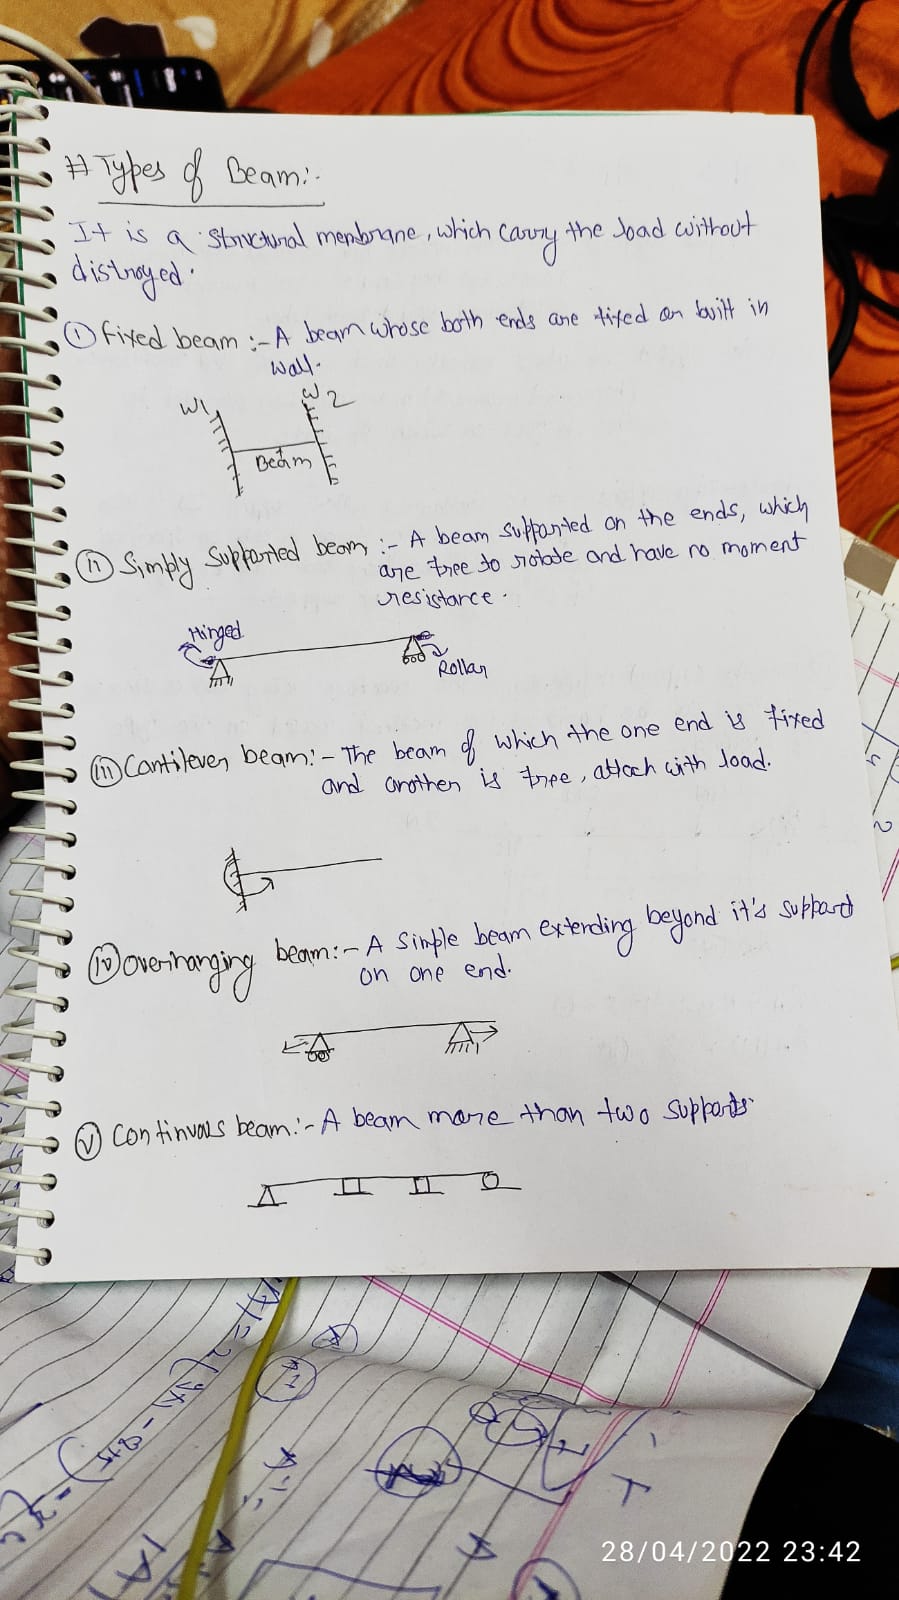 # Types of Beam:-
It is a structural menbrane, which carry the load without
distroyed.
① fixed beam :- A beam whose both ends are fixed or built in
wall.
W1
W2
Beam
ii Simply Supported beam :- A beam supported on the ends, which
are free to rotate and have no moment
resistance.
Hinged
Rollar
iii Cantilever beam:- The beam of which the one end is fixed
and another is free, attach with load.
iv overhanging beam:- A Simple beam extending beyond it's support
on one end.
v Continuous beam:- A beam more than two supports
28/04/2022 23:42